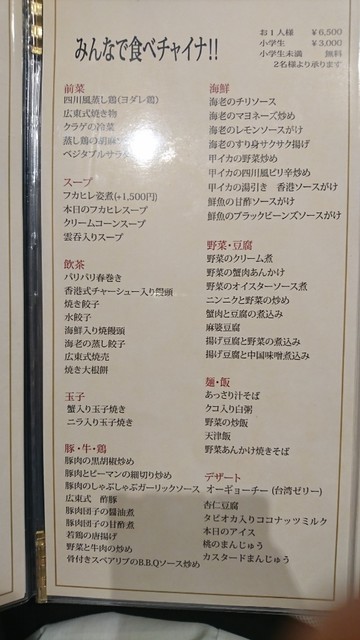 みんなで食べチャイナ!!
お1人様 ¥6,500
小学生 ¥3,000
小学生未満 無料
2名様より承ります
前菜
四川風蒸し鶏(ヨダレ鶏)
広東式焼き物
クラゲの冷菜
蒸し鶏の胡麻
ベジタブルサラダ
スープ
フカヒレ姿煮(+1,500円)
本日のフカヒレスープ
クリームコーンスープ
雲呑入りスープ
飲茶
パリパリ春巻き
香港式チャーシュー入り饅頭
焼き餃子
水餃子
海鮮入り焼饅頭
海老の蒸し餃子
広東式焼売
焼き大根餅
玉子
蟹入り玉子焼き
ニラ入り玉子焼き
豚・牛・鶏
豚肉の黒胡椒炒め
豚肉とピーマンの細切り炒め
豚肉のしゃぶしゃぶガーリックソース
広東式 酢豚
豚肉団子の醤油煮
豚肉団子の甘酢煮
若鶏の唐揚げ
野菜と牛肉の炒め
骨付きスペアリブのB.B.Qソース炒め
海鮮
海老のチリソース
海老のマヨネーズ炒め
海老のレモンソースがけ
海老のすり身サクサク揚げ
甲イカの野菜炒め
甲イカの四川風ピリ辛炒め
甲イカの湯引き 香港ソースがけ
鮮魚の甘酢ソースがけ
鮮魚のブラックビーンズソースがけ
野菜・豆腐
野菜のクリーム煮
野菜の蟹肉あんかけ
野菜のオイスターソース煮
ニンニクと野菜の炒め
蟹肉と豆腐の煮込み
麻婆豆腐
揚げ豆腐と野菜の煮込み
揚げ豆腐と中国味噌煮込み
麺・飯
あっさり汁そば
クコ入り白粥
野菜の炒飯
天津飯
野菜あんかけ焼きそば
デザート
オーギョーチー(台湾ゼリー)
杏仁豆腐
タピオカ入りココナッツミルク
本日のアイス
桃のまんじゅう
カスタードまんじゅう